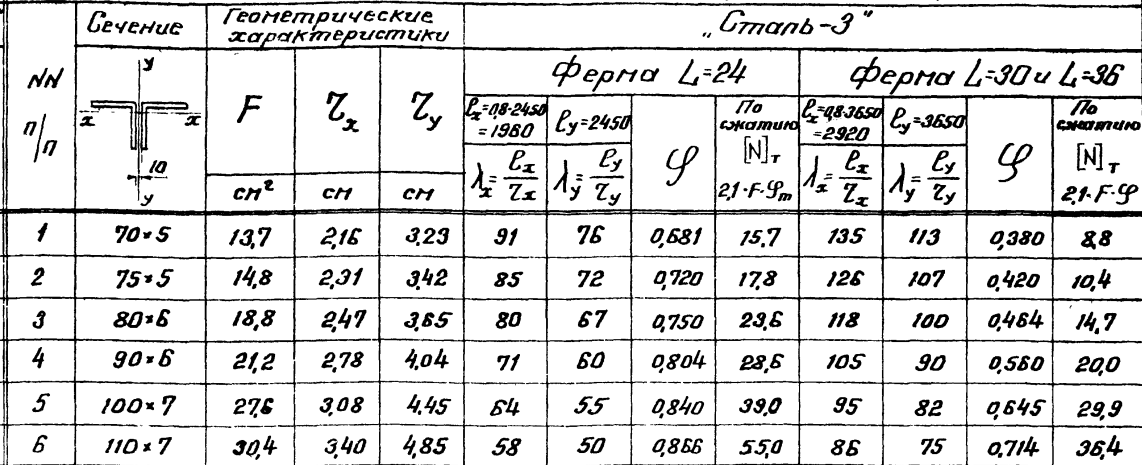 NN п/п | Сечение | Геометрические характеристики | „Сталь-3"
Ферма L=24 | Ферма L=30 и L=36
y x x 10 y | F | τx | τy | ℓx=0,8·2450 =1980 | ℓy=2450 | φ | По сжатию [N]т | ℓx=0,8·3650 =2920 | ℓy=3650 | φ | По сжатию [N]т
см² | см | см | λx=ℓx/τx | λy=ℓy/τy | 2,1·F·φm | λx=ℓx/τx | λy=ℓy/τy | 2,1·F·φ
1 | 70×5 | 13,7 | 2,16 | 3,23 | 91 | 76 | 0,681 | 15,7 | 135 | 113 | 0,380 | 8,8
2 | 75×5 | 14,8 | 2,31 | 3,42 | 85 | 72 | 0,720 | 17,8 | 126 | 107 | 0,420 | 10,4
3 | 80×6 | 18,8 | 2,47 | 3,65 | 80 | 67 | 0,750 | 23,6 | 118 | 100 | 0,464 | 14,7
4 | 90×6 | 21,2 | 2,78 | 4,04 | 71 | 60 | 0,804 | 28,6 | 105 | 90 | 0,560 | 20,0
5 | 100×7 | 27,6 | 3,08 | 4,45 | 64 | 55 | 0,840 | 39,0 | 95 | 82 | 0,645 | 29,9
6 | 110×7 | 30,4 | 3,40 | 4,85 | 58 | 50 | 0,866 | 55,0 | 86 | 75 | 0,714 | 36,4